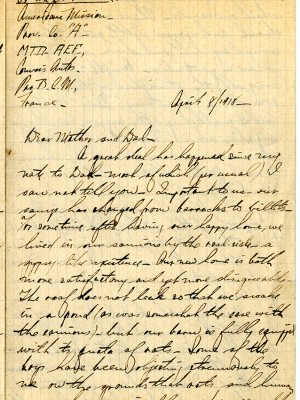 American Mission,
Prov. Co. "A"
MTD. AEF.,
Convois Autos.
Par B.C.M.,
France.
April 8/1918.
Dear Mother and Dad—
A great deal has happened since my
note to Dad— most of which (per usual) I
can not tell you. Important to us— our
has changed from barracks to billets
or sometime after leaving our happy home, we
lived in our camions by the road side— a
gypsy life existence. Our new home is both
more satisfactory and yet more disagreeable.
The roof does not leak so that we swam
in a pond (as was somewhat the case with
the camions)— but our barn is fully equipped
with its quota of rats. Some of the
boys have been objecting strenuously to
me on the grounds that rats and